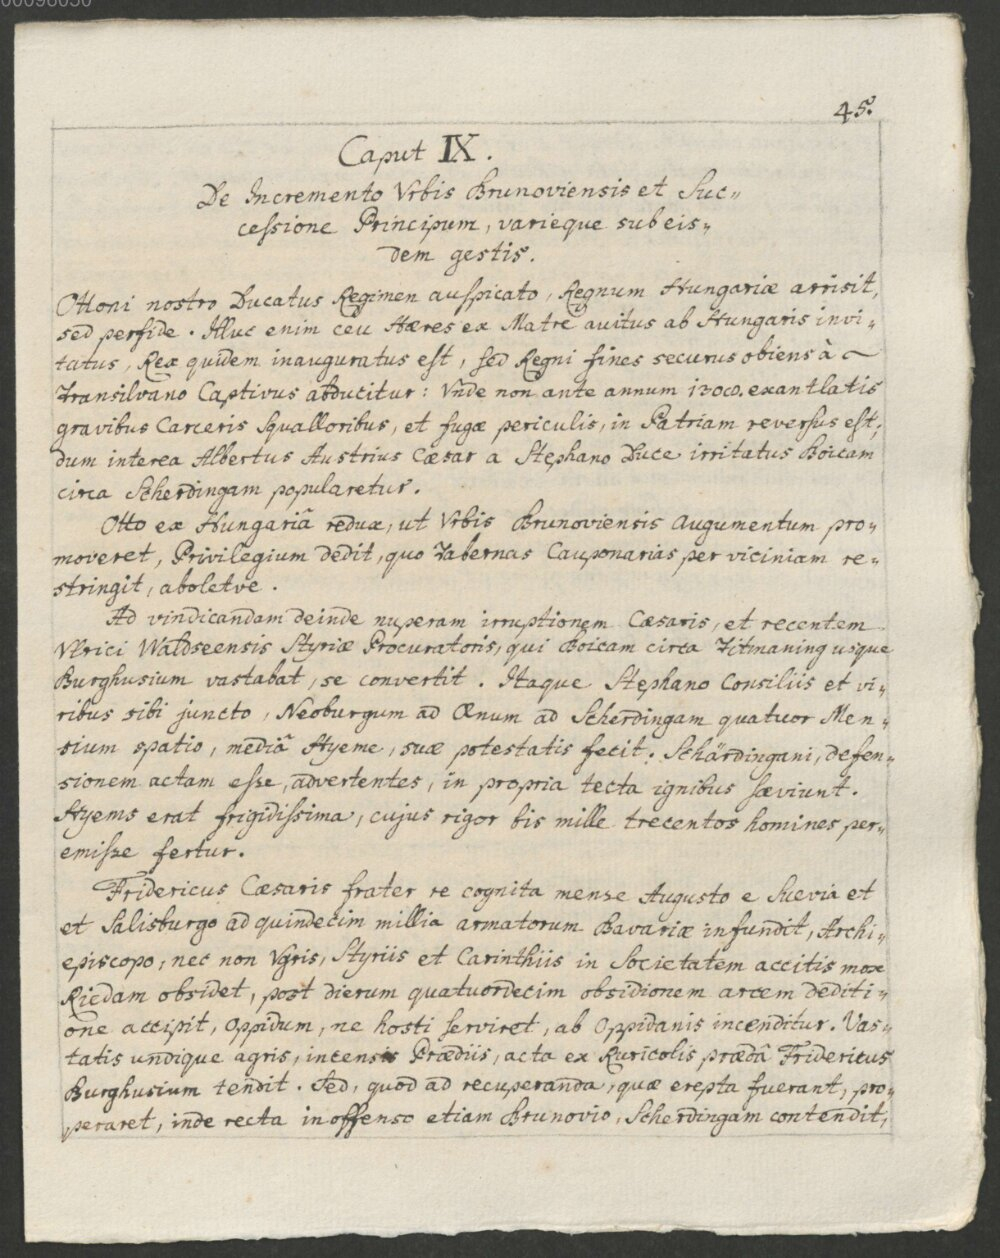 00098050
45.
Caput IX.
De Incremento Vrbis Brunoviensis et Suc„
cessione Principum, varieque sub eis„
dem gestis.
Ottoni nostro Ducatus Regimen auspicato, Regnum Hungariæ arrisit,
sed perfide. Illuc enim ceu Hæres ex Matre avitus ab Hungaris invi„
tatus, Rex quidem inauguratus est, sed Regni fines securus obiens à
Transilvano Captivus abducitur: Vnde non ante annum exantlatis
gravibus Carceris Squalloribus, et fugæ periculis, in Patriam reversus est,
dum interea Albertus Austrius Cæsar a Stephano Duce irritatus Boicam
circa Scherdingam popularetur.
Otto ex Hungariâ redux, ut Vrbis Brunoviensis Augumentum pro„
moveret, Privilegium dedit, quo Tabernas Cauponarias per viciniam re„
stringit, aboletve.
Ad vindicandam deinde nuperam irruptionem Cæsaris, et recentem
Vlrici Waldseensis Styriæ Procuratoris, qui Boicam circa Titmaning usque
Burghusium vastabat, se convertit. Itaque Stephano Consiliis et vi„
ribus sibi juncto, Neoburgum ad Œnum ad Scherdingam quatuor Men„
sium spatio, mediâ Hyeme, suæ potestatis fecit. Schärdingani, defen„
sionem actam esse, advertentes, in propria tecta ignibus sæviunt.
Hyems erat frigidissima, cujus rigor bis mille trecentos homines per„
emisse fertur.
Fridericus Cæsaris frater re cognita mense Augusto e Suevia et
et Salisburgo ad quindecim millia armatorum Bavariæ infundit, Archi„
episcopo, nec non Vgris, Styriis et Carinthiis in Societatem accitis mox
Riedam obsidet, post dierum quatuordecim obsidionem arcem dediti„
one accipit, Oppidum, ne hosti serviret, ab Oppidanis incenditur. Vas„
tatis undique agris, incensis Prædiis, acta ex Ruricolis prædâ Fridericus
Burghusium tendit. Sed, quod ad recuperanda, quæ erepta fuerant, pro„
peraret, inde recta inoffenso etiam Brunovio, Scherdingam contendit,